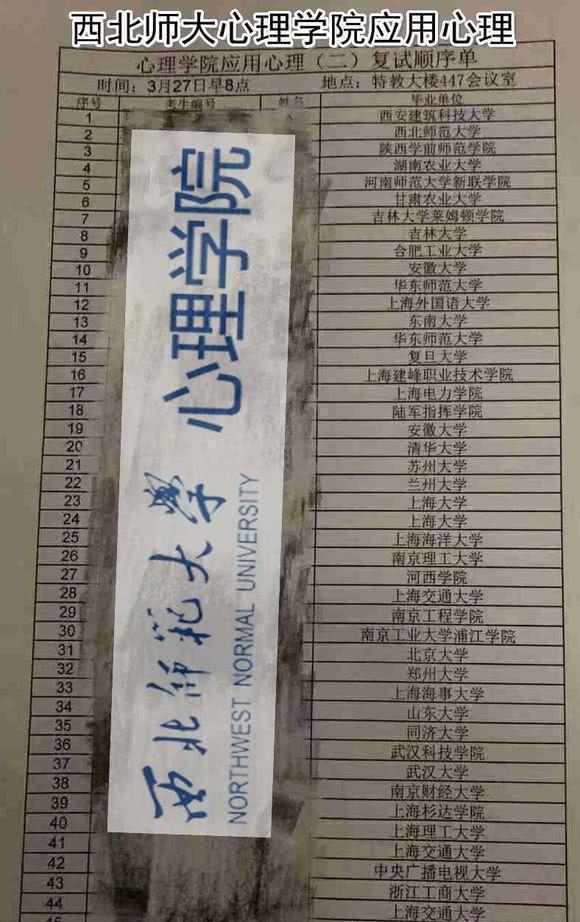 西北师大心理学院应用心理
心理学院应用心理（二）复试顺序单
时间：3月27日早8点 地点：特教大楼447会议室
序号 考生编号 姓名 毕业单位
1 西安建筑科技大学
2 西北师范大学
3 陕西学前师范学院
4 湖南农业大学
5 河南师范大学新联学院
6 甘肃农业大学
7 吉林大学莱姆顿学院
8 吉林大学
9 合肥工业大学
10 安徽大学
11 华东师范大学
12 上海外国语大学
13 东南大学
14 华东师范大学
15 复旦大学
16 上海建峰职业技术学院
17 上海电力学院
18 陆军指挥学院
19 安徽大学
20 清华大学
21 苏州大学
22 兰州大学
23 上海大学
24 上海大学
25 上海海洋大学
26 南京理工大学
27 河西学院
28 上海交通大学
29 南京工程学院
30 南京工业大学浦江学院
31 北京大学
32 郑州大学
33 上海海事大学
34 山东大学
35 同济大学
36 武汉科技学院
37 武汉大学
38 南京财经大学
39 上海杉达学院
40 上海理工大学
41 上海交通大学
42 中央广播电视大学
43 浙江工商大学
44 上海交通大学
西北师范大学 心理学院
NORTHWEST NORMAL UNIVERSITY